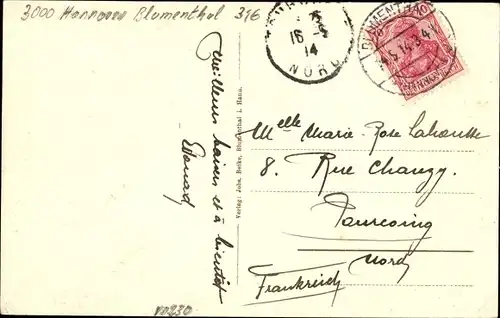 3000 Hannover Blumenthal 316
Meilleurs baisers et à bientôt
Edouard
Verlag: Johs. Betke, Blumenthal i. Hann.
16
14
NORD
BLUMENTHAL
14.5.14.3-4
HANNOVER
10
Melle Marie-Rose Lahoutte
8. Rue Chanzy.
Tourcoing
Nord
Frankreich